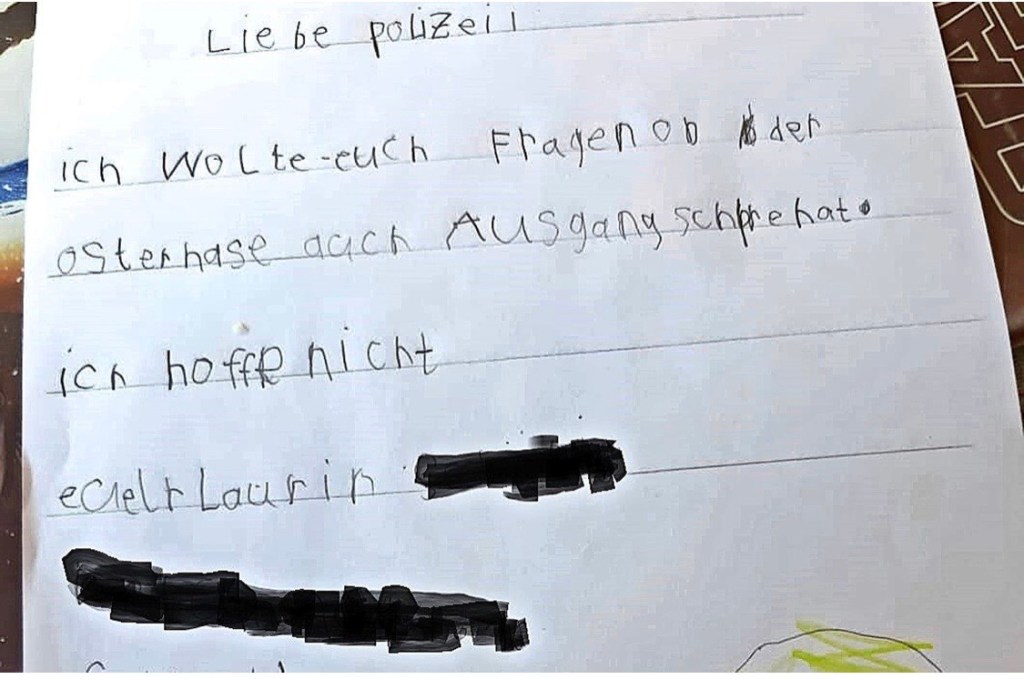 Liebe polizeil
ich wolte euch Fragen ob der
osterhase auch Ausgangschprehat.
ich hoffe nicht
euelr Laurin